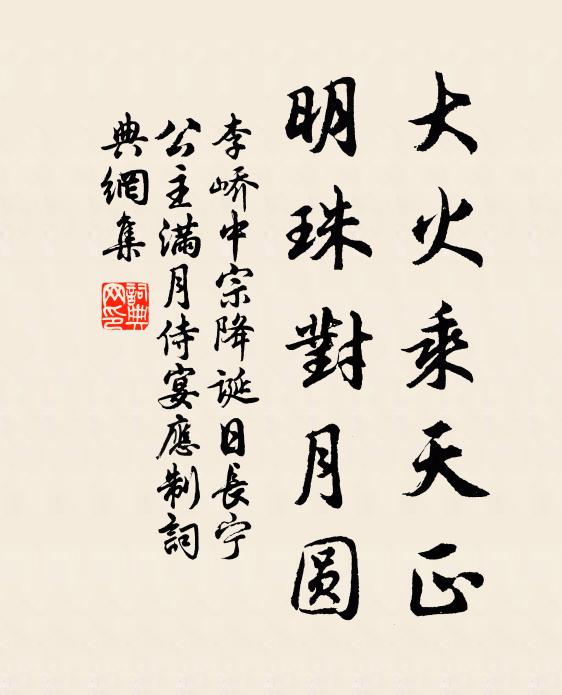 大火乘天正
明珠對月圓
李嶠中宗降誕日長宁
公主滿月侍宴應制詞
典網集
詞典
网印